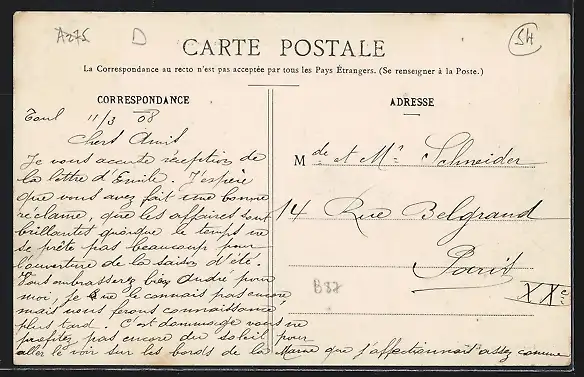 A275
D
54
CARTE POSTALE
La Correspondance au recto n'est pas acceptée par tous les Pays Étrangers. (Se renseigner à la Poste.)
CORRESPONDANCE
Toul 11/3 08
Chers Amis
Je vous accuse réception de
la lettre d'Emile. J'espère
que vous avez fait une bonne
réclame, que les affaires sont
brillantes quoique le temps ne
se prête pas beaucoup pour
l'ouverture de la saison d'été.
Vous embrasserez bien André pour
moi, je ne le connais pas encore,
mais nous ferons connaissance
plus tard. C'est dommage vous ne
profitez pas encore du soleil pour
aller le voir sur les bords de la Marne que j'affectionnait assez comme
ADRESSE
Mde et Mr Schneider
14 Rue Belgrand
Paris
XXe
B87